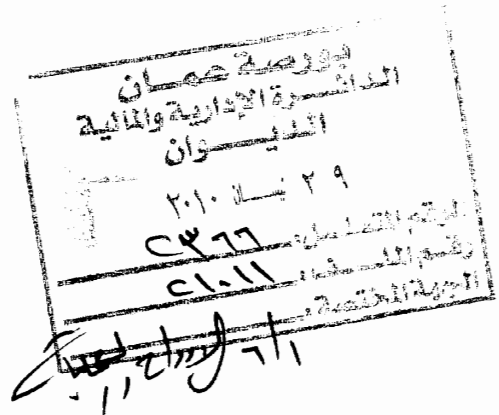 بورصة عمان
الدائرة الإدارية والمالية
الديوان
٢٩ نيسان ٢٠١٠
الرقم المتسلسل: ٢٣٦٦
رقم الملف: ٢١٠١١
الجهة المختصة: